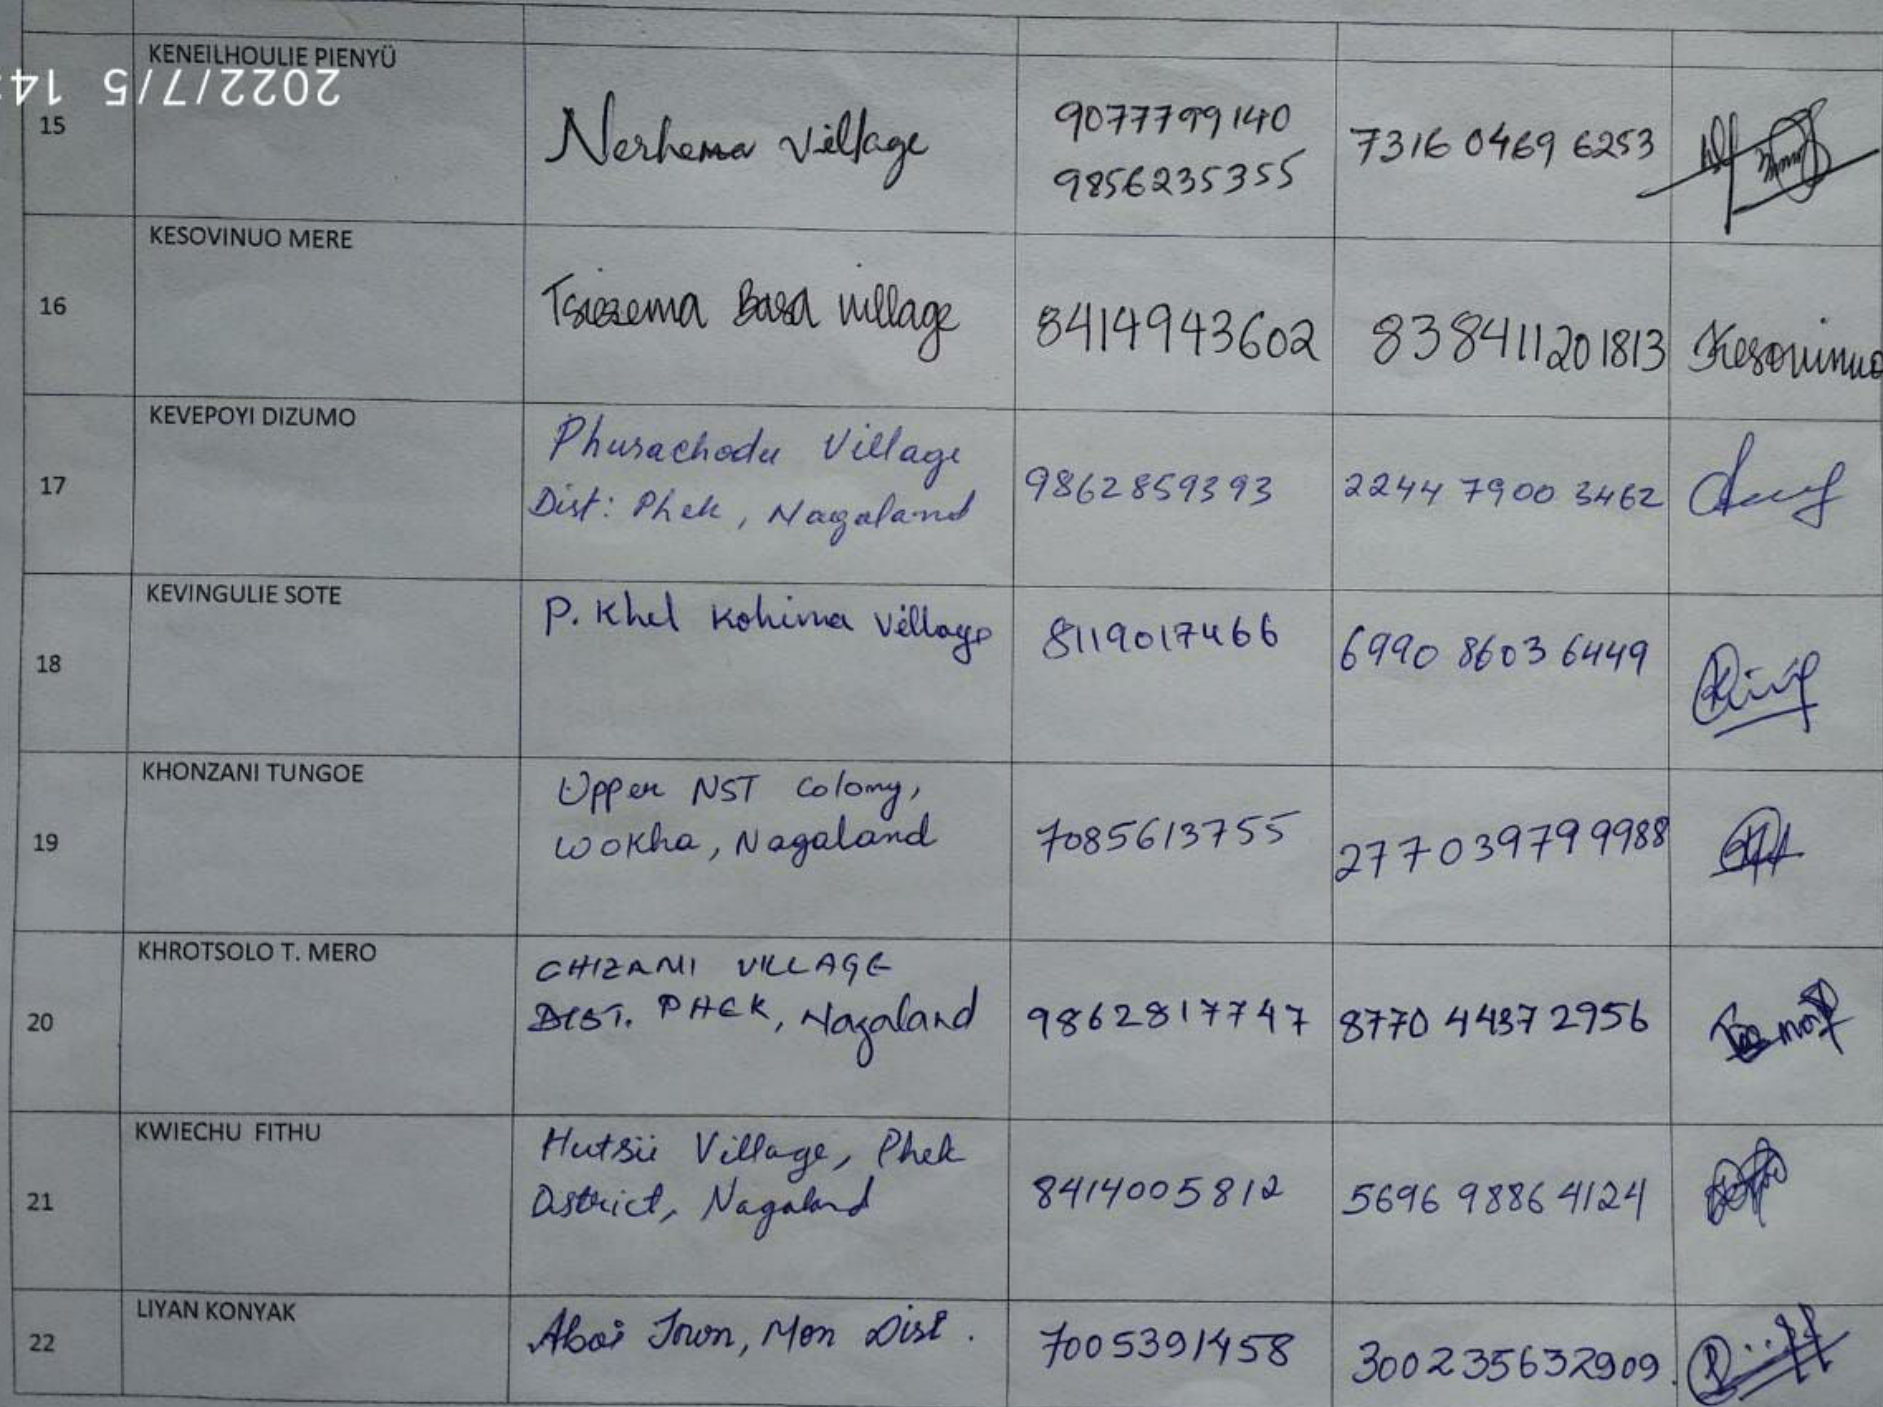 KENEILHOULIE PIENYÜ
2022/7/5 14:
15
Nerhema Village
9077799140
9856235355
7316 0469 6253
KESOVINUO MERE
16
Tsiezema Basa village
8414943602
838411201813
Kesovinuo
KEVEPOYI DIZUMO
17
Phusachodu Village
Dist: Phek, Nagaland
9862859393
2244 7900 3462
KEVINGULIE SOTE
18
P. Khel Kohima Village
8119017466
6990 8603 6449
KHONZANI TUNGOE
19
Upper NST Colony,
Wokha, Nagaland
7085613755
277039799988
KHROTSOLO T. MERO
20
CHIZAMI VILLAGE
DIST. PHEK, Nagaland
9862817747
8770 4437 2956
KWIECHU FITHU
21
Hutsü Village, Phek
District, Nagaland
8414005812
5696 9886 4124
LIYAN KONYAK
22
Aboi Town, Mon Dist.
7005391458
300235632909.